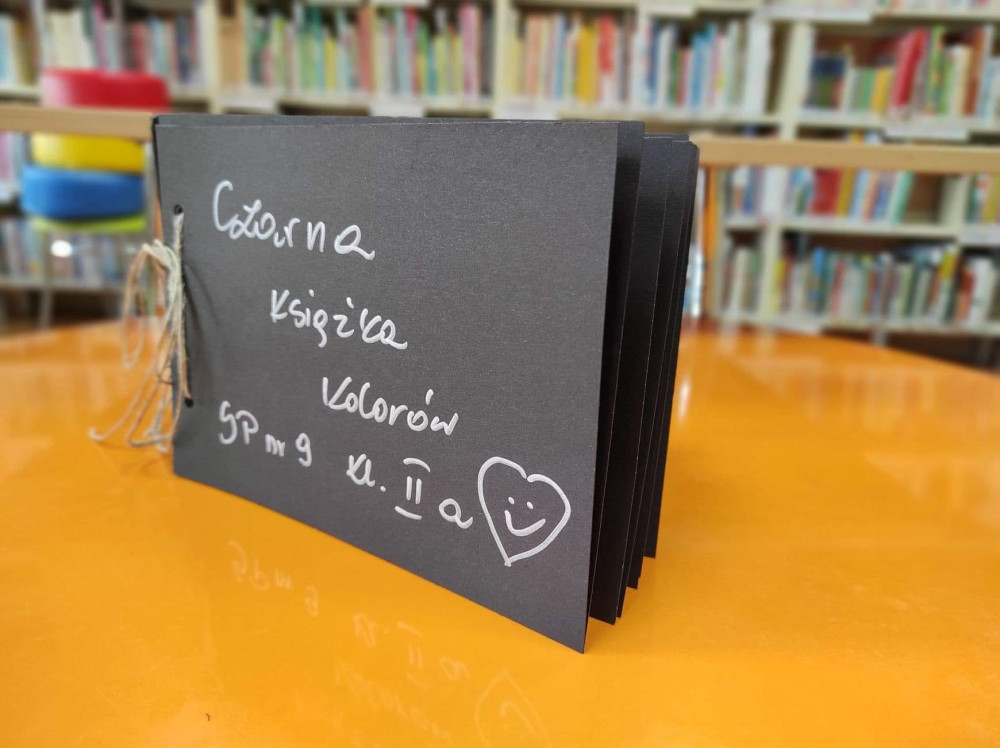 Czarna
Książka
Kolorów
SP nr 9 kl. II a